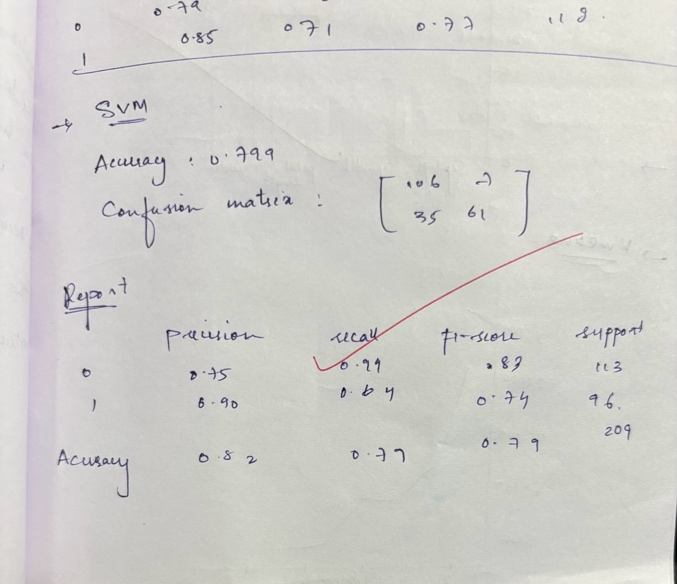 0 0.79
0.85 0.71 0.77 118.
1
→ SVM
Accuracy : 0.799
Confusion matrix : [ 106 7
35 61 ]
Report
precision recall f1-score support
0 0.75 0.99 .83 113
1 0.90 0.64 0.74 96.
209
Accuracy 0.82 0.79 0.79